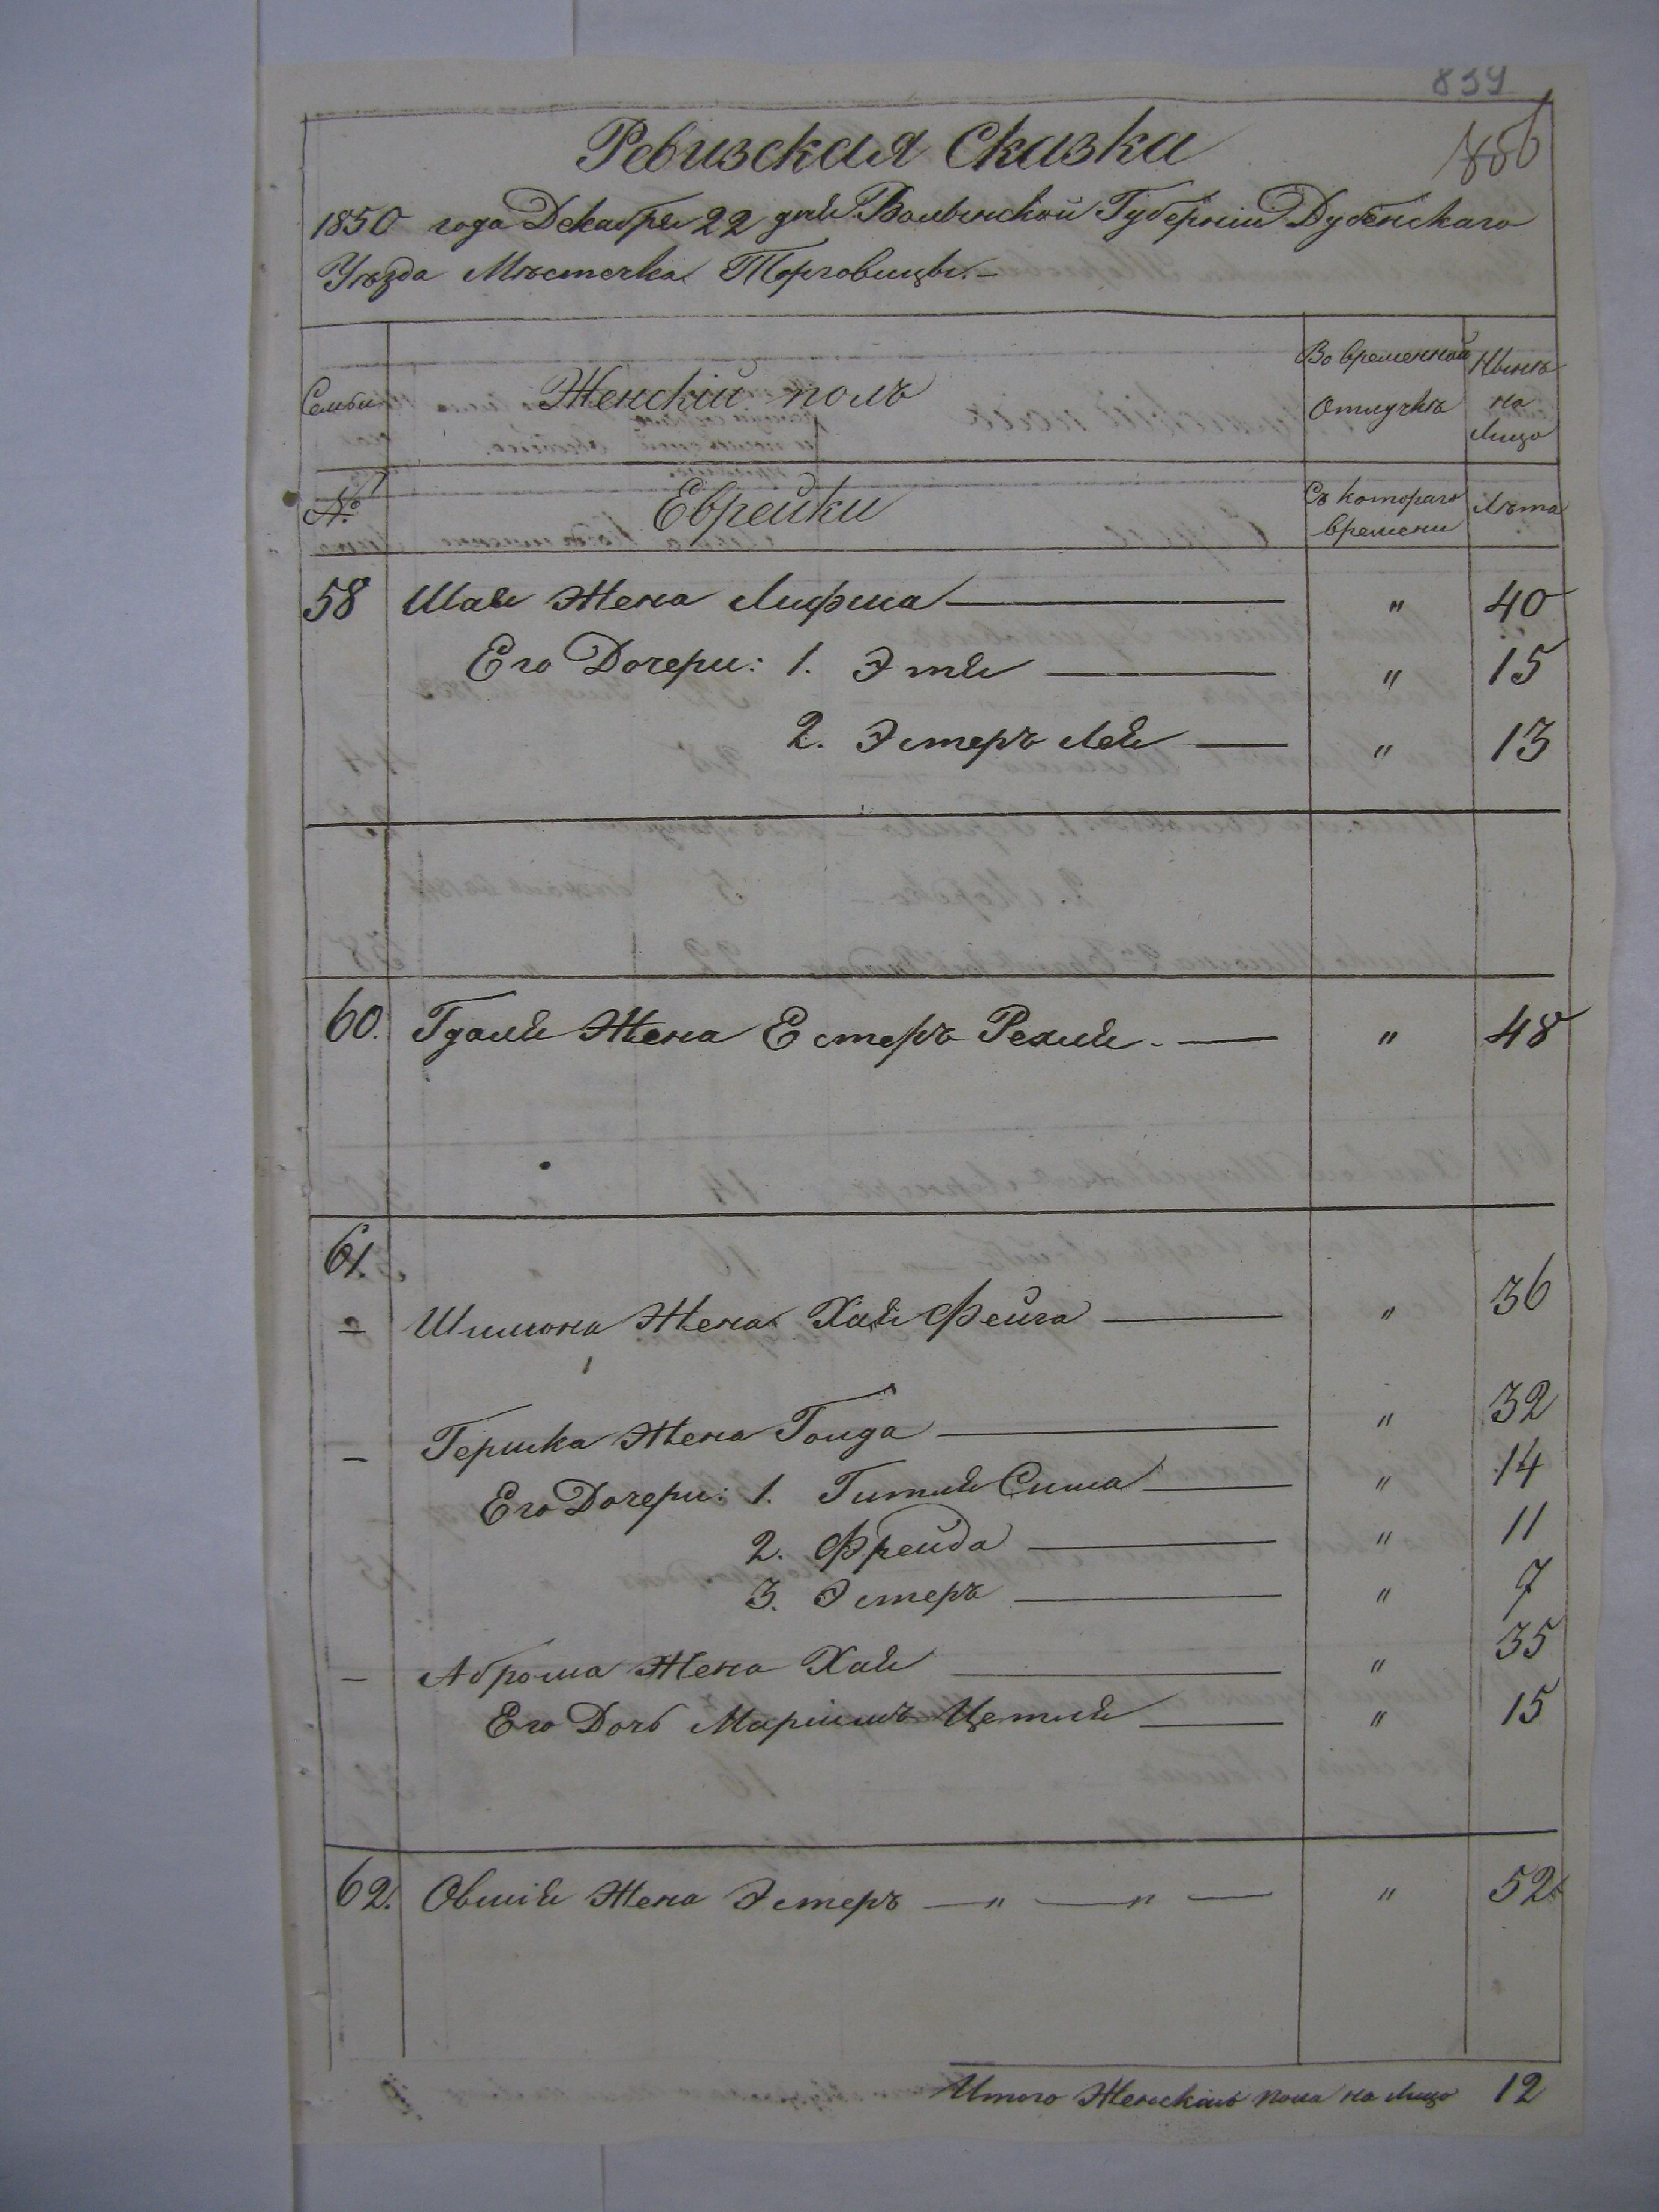 839
Ревизская Сказка
1850 года Декабря 22 дня Волынской Губерніи Дубенскаго
Уѣзда Мѣстечка Торговицы. –
Семьи
Женскій полъ
Во временной Отлучкѣ
Нынѣ на Лицо
№
Еврейки
Съ котораго времени
Лѣта
58 Шаи Жена Лифша — " 40
Его Дочери: 1. Этя — " 15
2. Эстеръ Лея — " 13
60. Гдаля Жена Естеръ Рехля. — " 48
61.
– Шимона Жена Хая Фейга — " 36
– Гершка Жена Гонда — " 32
Его Дочери: 1. Гитля Сима — " 14
2. Фрейда — " 11
3. Эстеръ — " 7
– Аброма Жена Хая — " 35
Его Дочь Маріимъ Цетля — " 15
62. Овшія Жена Эстеръ — " — " — " 52
Итого Женскаго пола на лицо 12